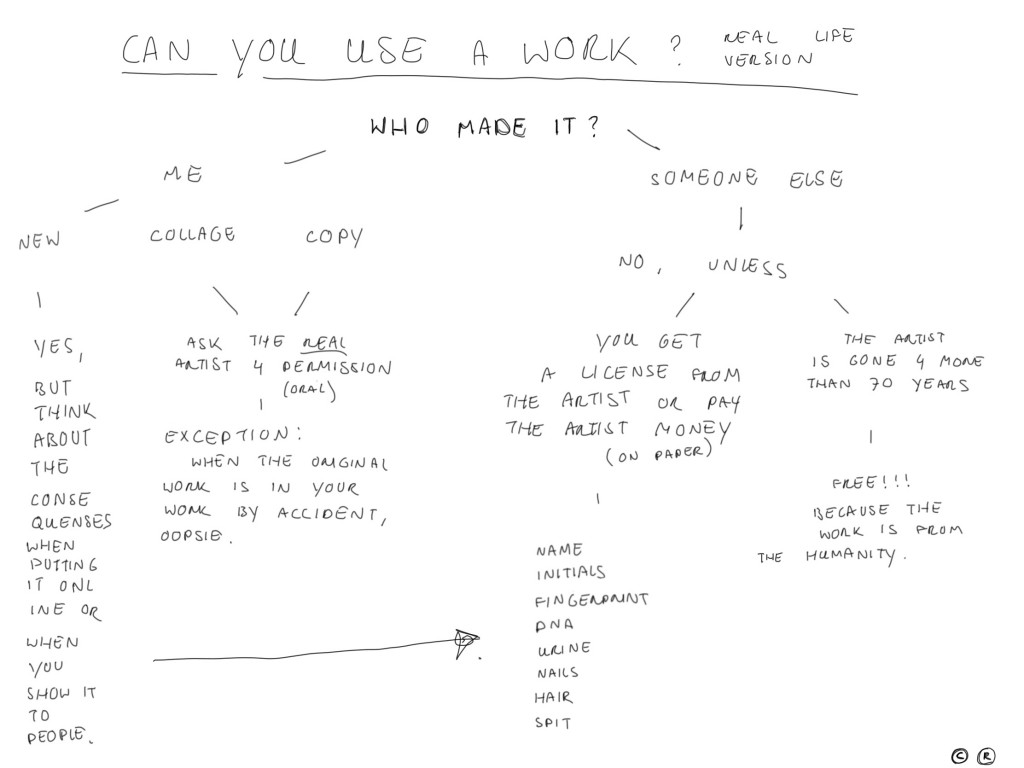 CAN YOU USE A WORK ?
REAL LIFE
VERSION
WHO MADE IT?
ME
NEW
COLLAGE
COPY
YES,
BUT
THINK
ABOUT
THE
CONSE
QUENSES
WHEN
PUTTING
IT ONL
INE OR
WHEN
YOU
SHOW IT
TO
PEOPLE.
ASK THE REAL
ARTIST 4 PERMISSION
(ORAL)
EXCEPTION:
WHEN THE ORIGINAL
WORK IS IN YOUR
WORK BY ACCIDENT,
OOPSIE.
SOMEONE ELSE
NO, UNLESS
YOU GET
A LICENSE FROM
THE ARTIST OR PAY
THE ARTIST MONEY
(ON PAPER)
NAME
INITIALS
FINGERPRINT
DNA
URINE
NAILS
HAIR
SPIT
THE ARTIST
IS GONE 4 MORE
THAN 70 YEARS
FREE!!!
BECAUSE THE
WORK IS FROM
THE HUMANITY.
© ®